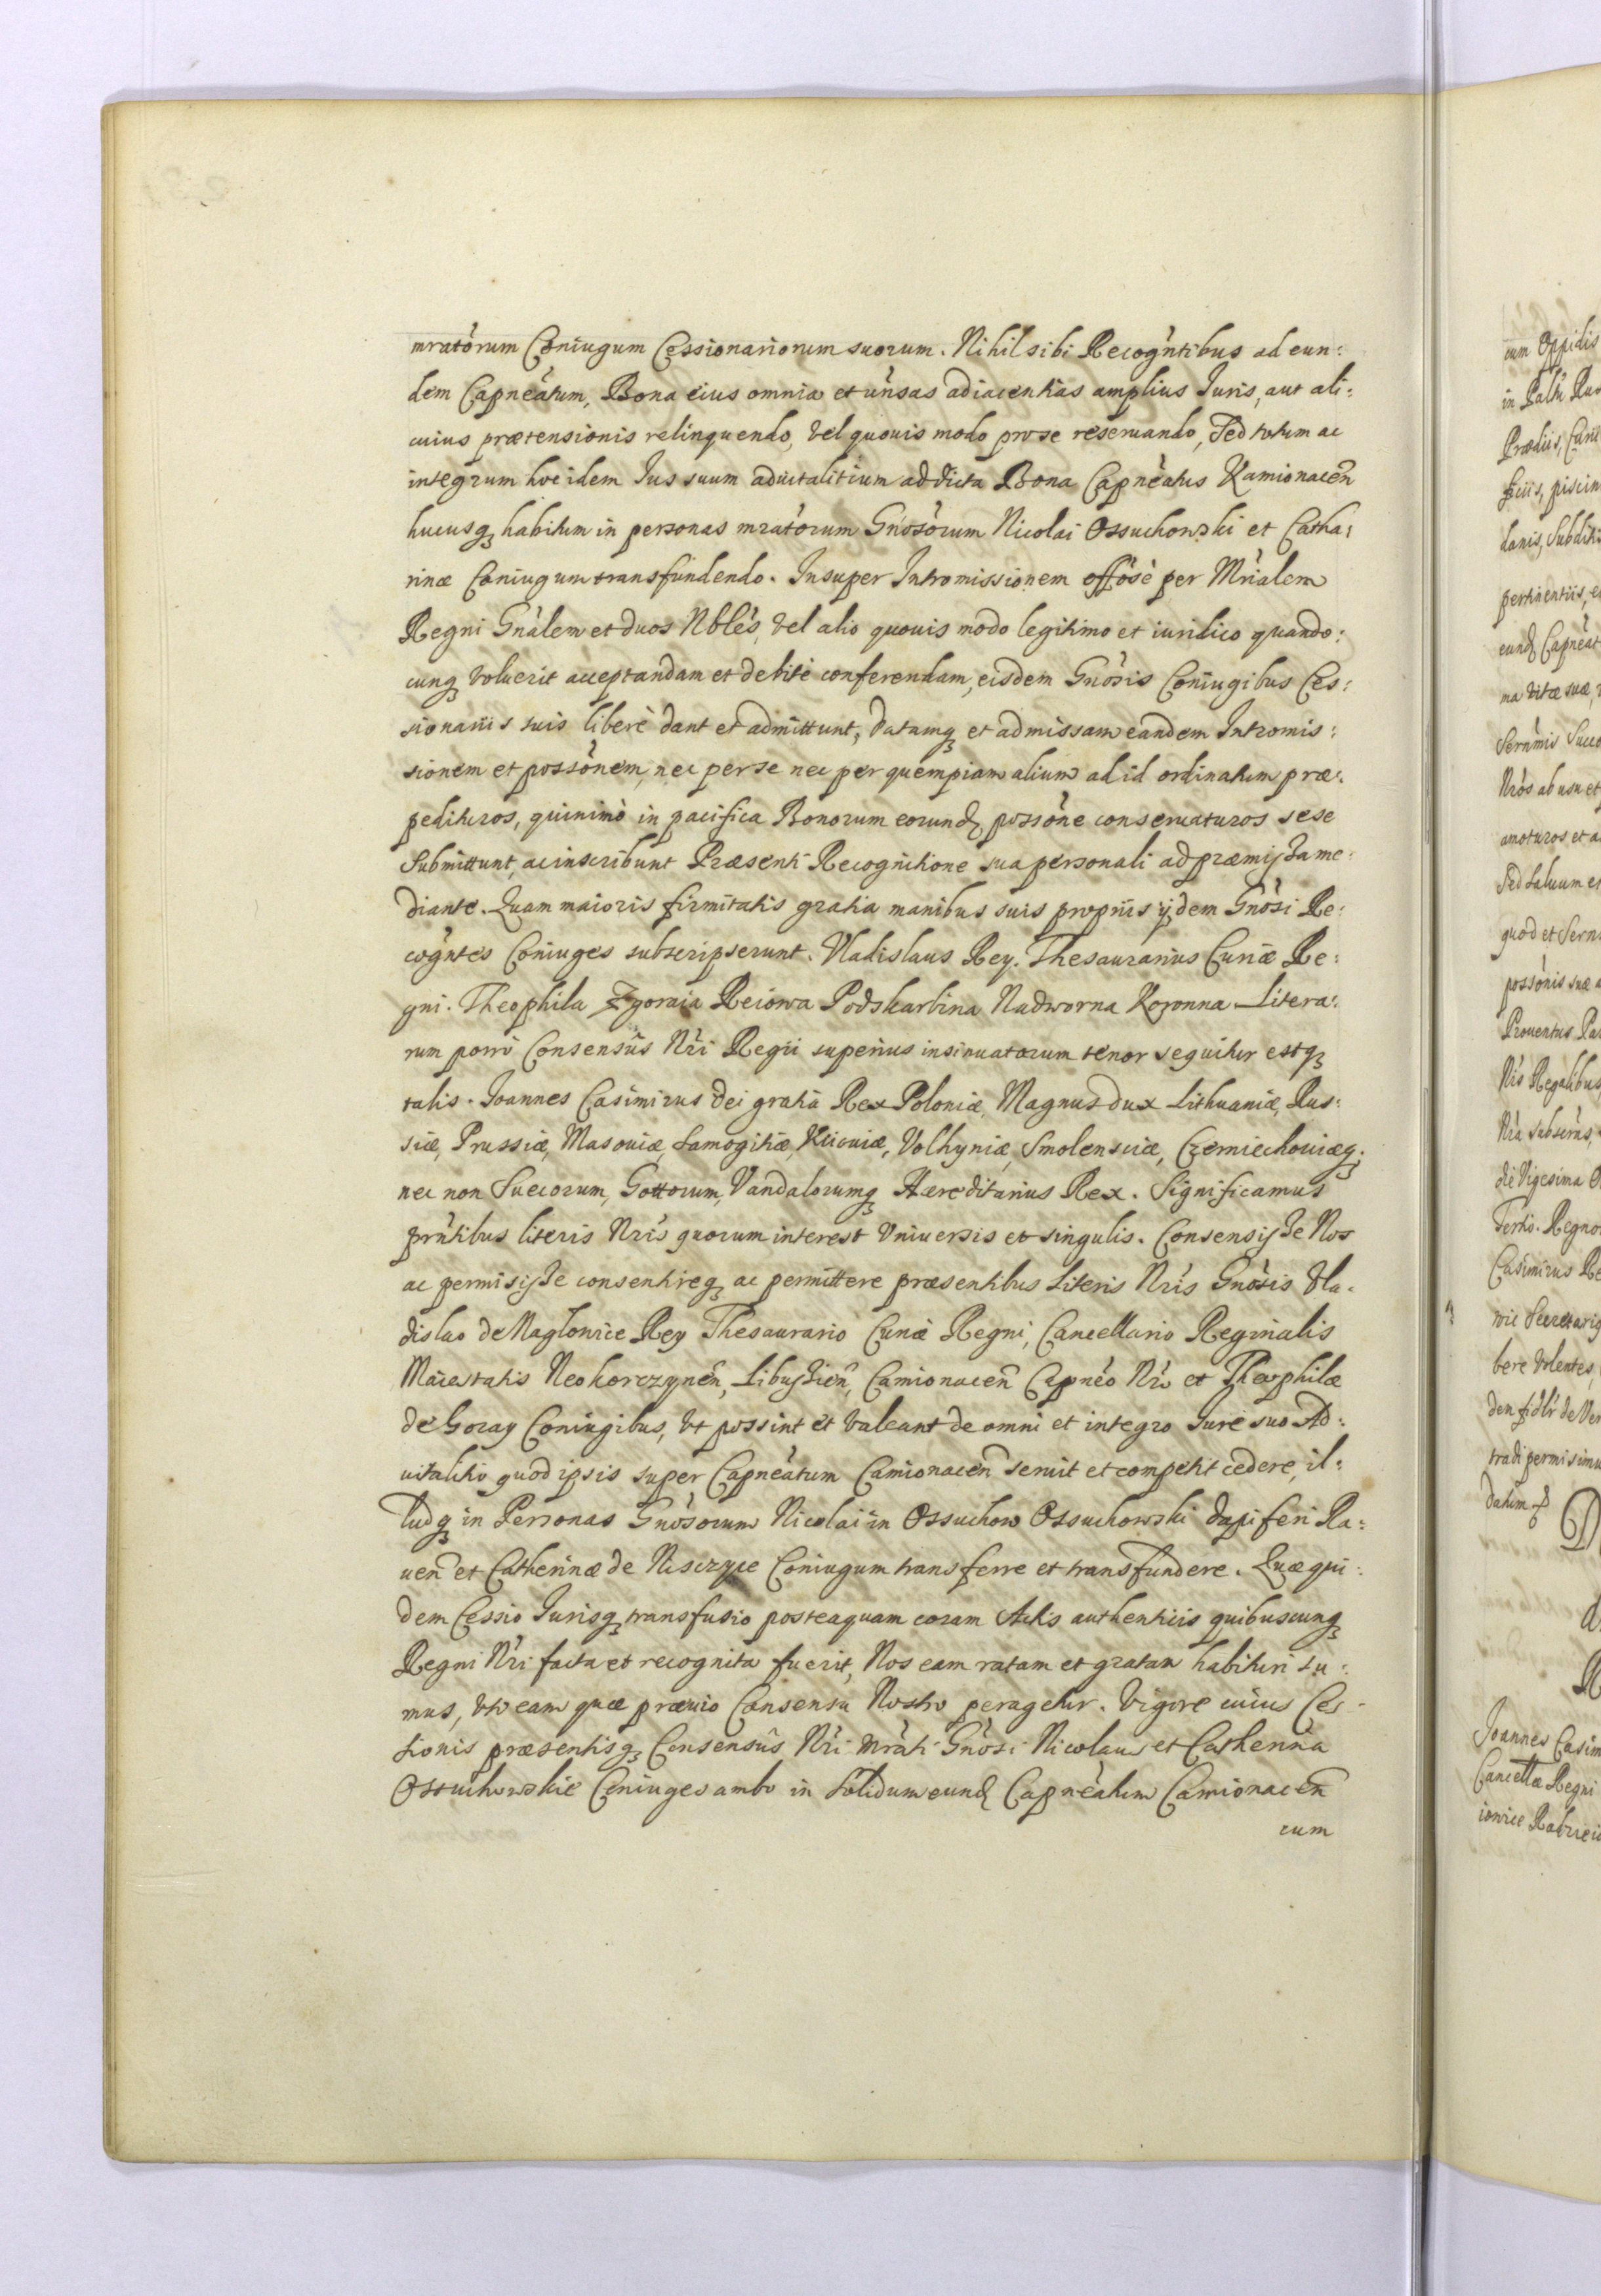 mratorum Coniugum Cessionariorum suorum. Nihil sibi Recogńtibus ad eun:
dem Capneatum, Bona eius omnia et uńsas adiacentias amplius Iuris, aut ali:
cuius prætensionis relinquendo, vel quouis modo pro se reseruando, Sed totum ac
integrum hoc idem Ius suum aduitalitium ad dicta Bona Capneatus Kamionaceñ
hucusq habitum in personas mratorum Gnosorum Nicolai Ossuchowski et Catha:
rinæ Coniugum transfundendo. Insuper Intromissionem offose per Mrialem
Regni Gnalem et duos Nbles, vel alio quouis modo legitimo et iuridico quando:
cunq voluerit acceptandam et debite conferendam, eisdem Gnosis Coniugibus Ces:
sionariis suis libere dant et admittunt, datamq et admissam eandem Intromis:
sionem et possonem, nec per se nec per quempiam alium ad id ordinatum præ:
pedituros, quinimò in pacifica Bonorum eorund possone conseruaturos sese
Submittunt, ac inscribunt Præsenti Recognitione sua personali ad præmissa me:
diante. Quam maioris firmitatis gratia manibus suis proprijs ijdem Gnosi Re:
cogntes Coniuges subscripserunt. Vladislaus Rey. Thesaurarius Curiæ Re:
gni. Theophila Zgoraia Reiowa Podskarbina Nadworna Koronna. Litera:
rum porro Consensûs Nri Regii superius insinuatorum tenor sequitur estq
talis. Joannes Casimirus Dei gratia Rex Poloniæ, Magnus Dux Lithuaniæ, Rus:
siæ, Prussiæ, Masouiæ, Samogitiæ, Kiiouiæ, Volhyniæ, Smolensciæ, Czerniechouiæq;
nec non Suecorum, Gottorum, Vandalorumq Hæreditarius Rex. Significamus
prntibus literis Nris quorum interest Vniuersis et singulis. Consensisse Nos
ac permisisse consentireq ac permittere præsentibus Literis Nris Gnosis Vla:
dislao de Naglowice Rey Thesaurario Curiæ Regni, Cancellario Reginalis
Maiestatis Neokorczyneñ, Libusieñ, Camionaceñ Capneo Nro et Theophilæ
de Goray Coniugibus, Vt possint et valeant de omni et integro Iure suo Ad:
uitalitio quod ipsis super Capneatum Camionaceñ seruit et competit cedere, il:
ludq in Personas Gnosorum Nicolai in Ossuchow Ossuchowski Dapiferi Ra:
ueñ et Catherinæ de Nisczyce Coniugum transferre et transfundere. Quæ qui:
dem Cessio Iurisq transfusio posteaquam coram Actis authenticis quibuscunq
Regni Nri facta et recognita fuerit, Nos eam ratam et gratam habituri su:
mus, vti eam quæ præuio Consensu Nostro peragetur. Vigore cuius Ces:
sionis præsentisq Consensûs Nri mrati Gnosi Nicolaus et Catherina
Ossuchowskie Coniuges ambo in solidum eund Capneatum Camionaceñ
cum
cum Oppidis
in Paltu
Prædiis,
piscin
danis, Subditi
pertinentiis, e
eund Capneat
na vitæ suæ,
Sernmis Succ
Nros ab usu et
amoturos et a
Sed saluum e
quod et Sern
possonis suæ a
Prouentus
Nis Regalibus
Nra subscras,
die Vigesima
Tertio. Regno
Casimirus Re
wic Secretariq
bere volentes,
den
tradi permisimu
Datum
Joannes Casim
Cancellæ Regni